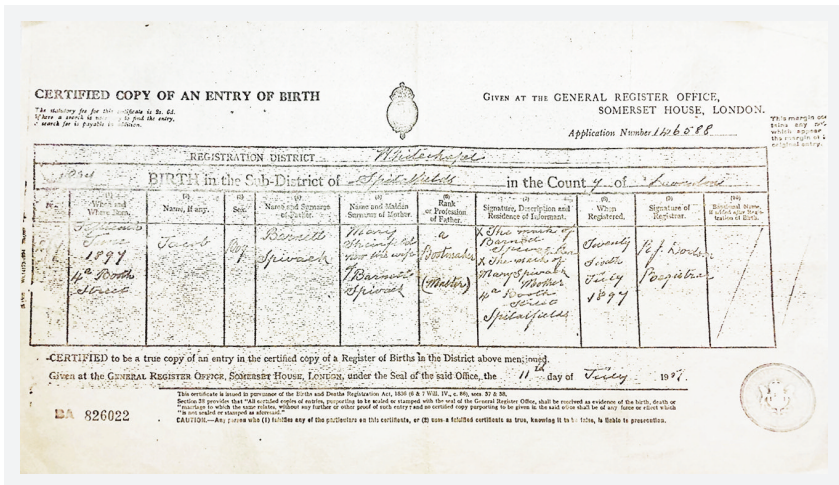 CERTIFIED COPY OF AN ENTRY OF BIRTH
The statutory fee for this certificate is 2s. 6d.
search fee is payable in addition.
GIVEN AT THE GENERAL REGISTER OFFICE,
SOMERSET HOUSE, LONDON.
Application Number 146588
This margin
which appear
original entry.
REGISTRATION DISTRICT Whitechapel
BIRTH in the Sub-District of Spitalfields in the County of London
When and Where Born. Name, if any. Sex. Name and Surname of Father. Name and Maiden Surname of Mother. Rank or Profession of Father. Signature, Description and Residence of Informant. When Registered. Signature of Registrar.
June 1897 4a Booth Street
Jacob
Boy
Barnett Spivack
Mary now the wife of Barnett Spivack
a Bootmaker (Master)
X The mark of Barnett Spivack X The mark of Mary Spivack Mother 4a Booth Street Spitalfields
Twenty Sixth July 1897
Registrar
CERTIFIED to be a true copy of an entry in the certified copy of a Register of Births in the District above mentioned.
Given at the GENERAL REGISTER OFFICE, SOMERSET HOUSE, LONDON, under the Seal of the said Office, the 11th day of July 19
BA 826022
This certificate is issued in pursuance of the Births and Deaths Registration Act, 1836 (6 & 7 Will. IV., c. 86), secs. 37 & 38.
Section 38 provides that "All certified copies of entries, purporting to be sealed or stamped with the seal of the General Register Office, shall be received as evidence of the birth, death or
marriage to which the same relates, without any further or other proof of such entry; and no certified copy purporting to be given in the said office shall be of any force or effect which
is not sealed or stamped as aforesaid."
CAUTION.—Any person who (1) falsifies any of the particulars on this certificate, or (2) uses a falsified certificate as true, knowing it to be false, is liable to prosecution.